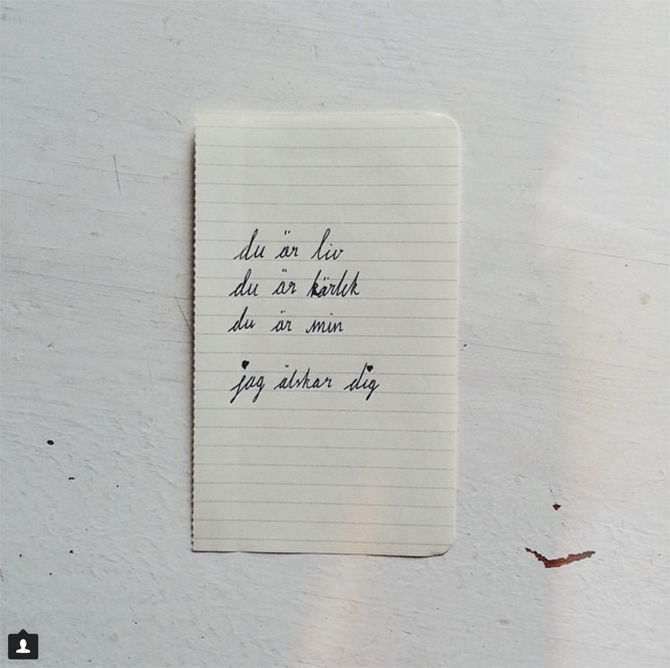 du är liv
du är kärlek
du är min
jag älskar dig